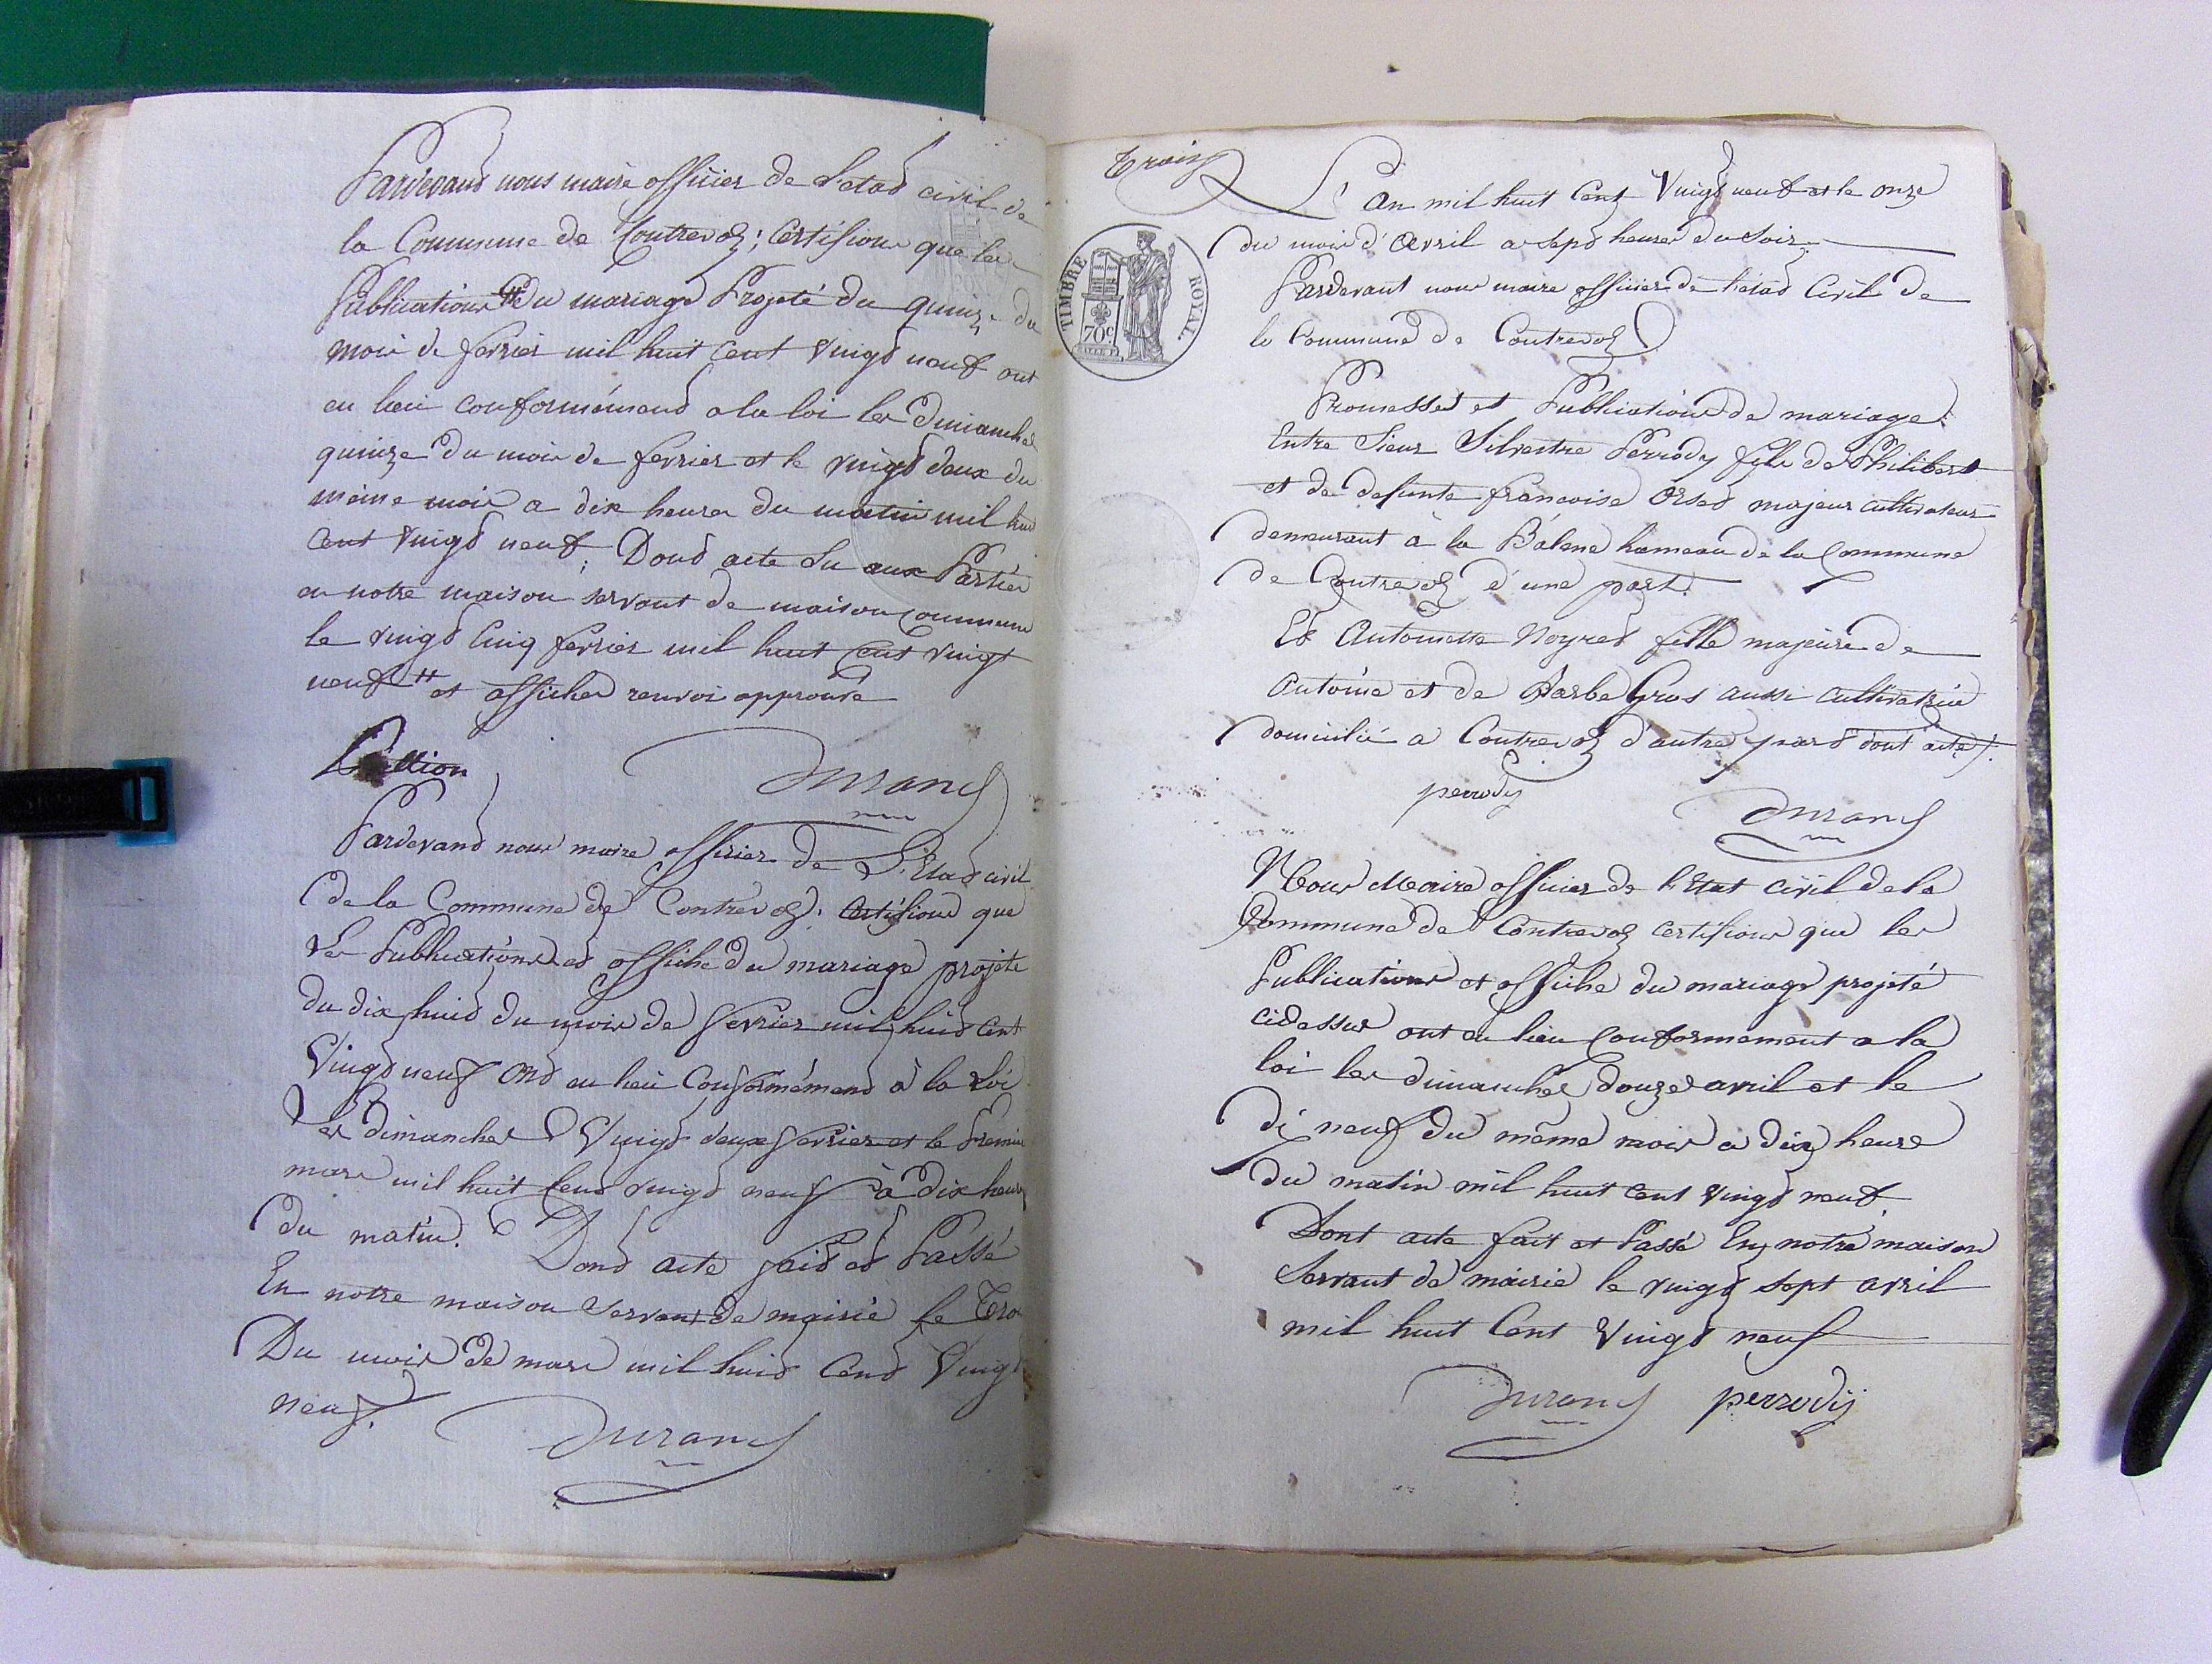 Pardevant nous maire officier de L'etat civil de
la Commune de Contrevoz; Certifions que les
Publications # du mariage Projeté du quinze du
mois de fevrier mil huit cent vingt neuf ont
eu lieu conformément a la loi les Dimanches
quinze Du mois de fevrier et le vingt deux du
même mois a dix heures du matin mil huit
Cent vingt neuf; Dont acte Lu aux Parties
en notre maison servant de maison commune
le vingt cinq fevrier mil huit cent vingt
neuf # et affiches renvoi approuvé
Durand
Pardevant nous maire officier de L'Etat civil
de la Commune de Contrevoz; Certifions que
Les Publications et affiche du mariage projeté
du dix huit du mois de fevrier mil huit cent
Vingt neuf Ont eu lieu Conformément à la Loi
Les dimanches Vingt deux fevrier et le Premier
mars mil huit cent vingt neuf à dix heures
du matin. Dont acte fait et Passé
En notre maison servant de mairie le Trois
Du mois de mars mil huit Cent Vingt
neuf.
Durand
Trois
L'an mil huit Cent Vingt neuf et le onze
du mois d'Avril a sept heures du Soir.
Pardevant nous maire officier de l'état Civil de
la Commune de Contrevoz
Promesses et Publications de mariage.
Entre Sieur Silvestre Perrody fils de Philibert
et de defunte francoise Orset majeur cultivateur
demeurant à la Bálme hameau de la Commune
de Contrevoz d'une part.
Et Antoinette Noyret fille majeure de
Antoine et de Barbe Gros aussi cultivatrice
domicilié a Contrevoz d'autre part dont acte.
perrody
Durand
Nous Maire officier de l'Etat civil de la
Commune de Contrevoz certifions que les
Publications et affiche du mariage projeté
cidessus ont eu lieu conformement a la
loi les dimanches douze avril et le
di neuf du même mois a dix heure
du matin mil huit cent vingt neuf.
Dont acte fait et Passé En notre maison
Servant de mairie le vingt sept avril
mil huit Cent Vingt neuf
Durand perrody
TIMBRE ROYAL.
70c